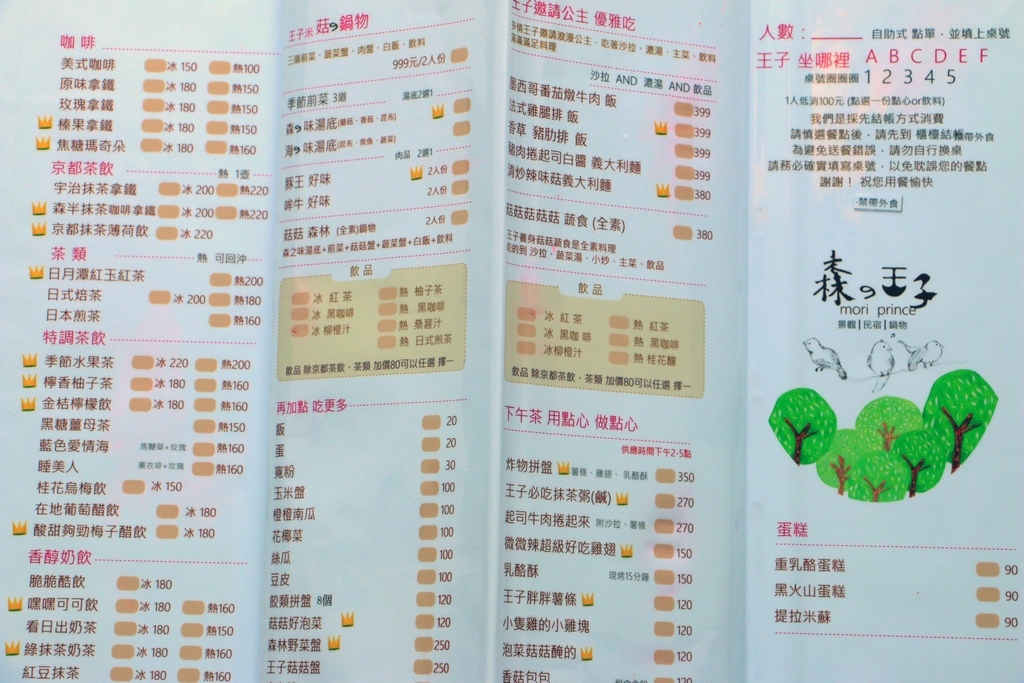 咖啡
美式咖啡 冰 150 熱100
原味拿鐵 冰 180 熱150
玫瑰拿鐵 冰 180 熱150
榛果拿鐵 冰 180 熱150
焦糖瑪奇朵 冰 180 熱160
京都茶飲 熱 1壺
宇治抹茶拿鐵 冰 200 熱220
森半抹茶咖啡拿鐵 冰 200 熱220
京都抹茶薄荷飲 冰 220
茶 類 熱 可回沖
日月潭紅玉紅茶 熱200
日式焙茶 冰 200 熱180
日本煎茶 熱160
特調茶飲
季節水果茶 冰 220 熱200
檸香柚子茶 冰 180 熱160
金桔檸檬飲 冰 180 熱160
黑糖薑母茶 熱150
藍色愛情海 馬鞭草+玫瑰 熱160
睡美人 薰衣草+玫瑰 熱160
桂花烏梅飲 冰 150
在地葡萄醋飲 冰 180
酸甜夠勁梅子醋飲 冰 180
香醇奶飲
脆脆酷飲 冰 180
嘿嘿可可飲 冰 180 熱160
看日出奶茶 冰 180 熱150
綠抹茶奶茶 冰 180 熱160
紅豆抹茶 冰 180 熱160
王子米 菇の鍋物
三道前菜、蔬菜盤、肉盤、白飯、飲料
999元/2人份
季節前菜 3道 湯底2選1
森の味湯底(蘑菇、香菇、昆布)
海の味湯底(昆布、柴魚、蔬菜)
肉品 2選1
豚王 好味 2人份
哞牛 好味 2人份
菇菇 森林 (全素)鍋物 2人份
森之味湯底+前菜+菇菇盤+蔬菜盤+白飯+飲料
飲 品
冰 紅 茶 熱 柚子茶
冰 黑咖啡 熱 黑咖啡
冰柳橙汁 熱 桑葚汁
熱 日式煎茶
飲品 除京都茶飲、茶類 加價80可以任選 擇一
再加點 吃更多
飯 20
蛋 20
寬粉 30
玉米盤 100
橙橙南瓜 100
花椰菜 100
絲瓜 100
豆皮 100
餃類拼盤 8個 100
菇菇好泡菜 120
森林野菜盤 250
王子菇菇盤 250
王子邀請公主 優雅吃
多情王子邀請浪漫公主，吃著沙拉、濃湯、主菜、飲料
滿滿滿足料理
沙拉 AND 濃湯 AND 飲品
墨西哥番茄燉牛肉 飯 399
法式雞腿排 飯 399
香草 豬肋排 飯 399
豬肉捲起司白醬 義大利麵 399
清炒辣味菇義大利麵 380
菇菇菇菇菇 蔬食 (全素) 380
王子養身菇菇蔬食是全素料理
吃的到 沙拉、蔬菜湯、小炒、主菜、飲品
飲 品
冰 紅 茶 熱 紅茶
冰 黑咖 啡 熱 黑咖啡
冰柳橙汁 熱 桂花釀
飲品 除京都茶飲、茶類 加價80可以任選 擇一
下午茶 用點心 做點心
供應時間下午2-5點
炸物拼盤 薯條、雞翅、乳酪酥 350
王子必吃抹茶粥(鹹) 270
起司牛肉捲起來 附沙拉、薯條 270
微微辣超級好吃雞翅 150
乳酪酥 現烤15分鐘 150
王子胖胖薯條 120
小隻雞的小雞塊 120
泡菜菇菇醃的 120
香菇包包
人數： 自助式 點單，並填上桌號
王子 坐哪裡 A B C D E F
桌號圈圈圈 1 2 3 4 5
1人低消100元 (點選一份點心or飲料)
我們是採先結帳方式消費
請慎選餐點後，請先到 櫃檯結帳帶外食
為避免送餐錯誤，請勿自行換桌
請務必確實填寫桌號，以免耽誤您的餐點
謝謝！ 祝您用餐愉快
禁帶外食
森の王子
mori prince
景觀|民宿|鍋物
蛋糕
重乳酪蛋糕 90
黑火山蛋糕 90
提拉米蘇 90